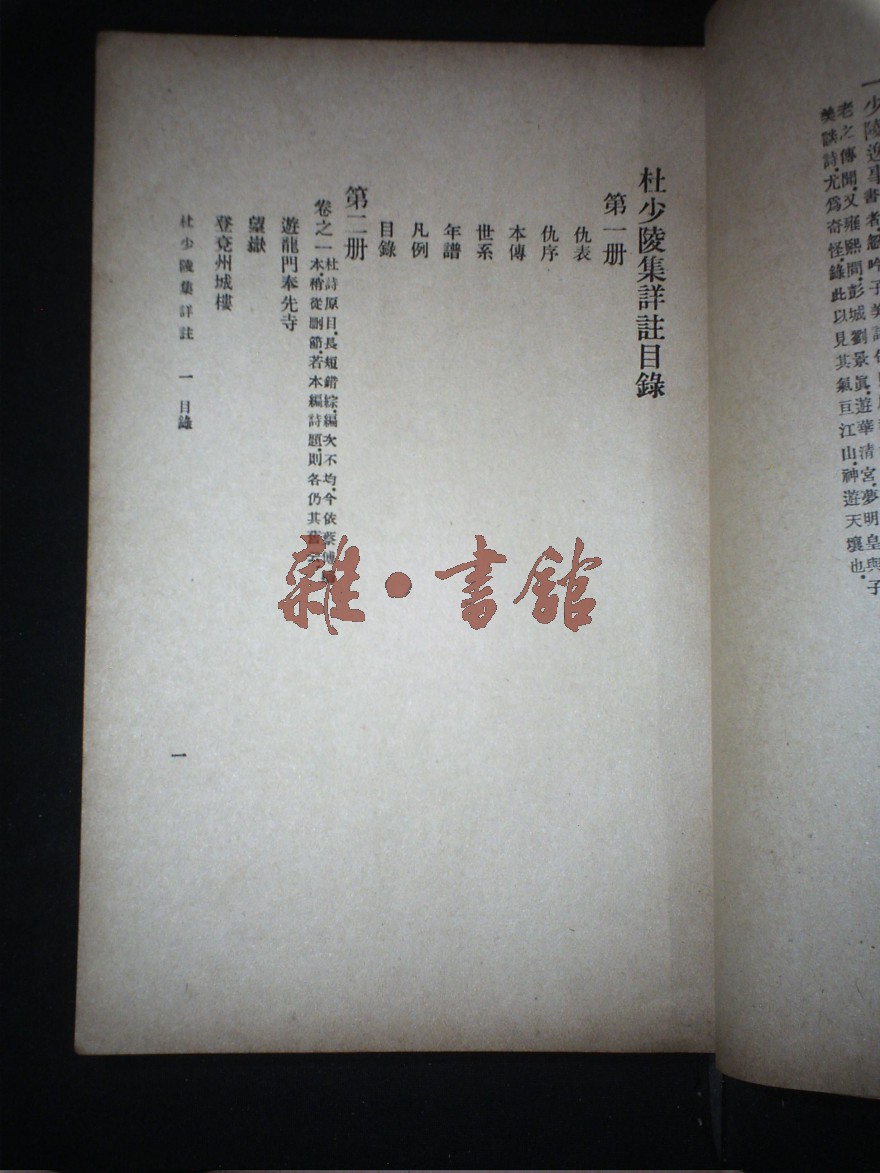 老之傳聞又雍熙間彭城劉景眞遊華清宮夢明皇與子
美談詩尤爲奇怪錄此以見其氣亘江山神遊天壤也
杜少陵集詳註目錄
第一册
仇表
仇序
本傳
世系
年譜
凡例
目錄
第二册
卷之一
杜詩原目長短錯綜編次不均今依蔡傅
本稍從刪節若本編詩題則各仍其舊
遊龍門奉先寺
望嶽
登兗州城樓
杜少陵集詳註 一 目錄
一
雜·書館